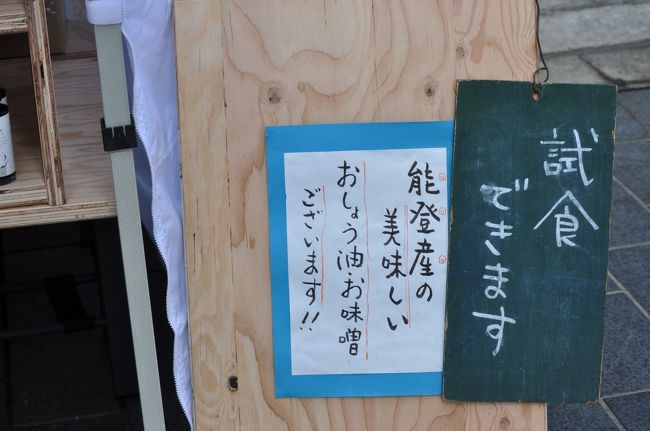 試食
できます
能登産の
美味しい
おしょう油・お味噌
ございます!!